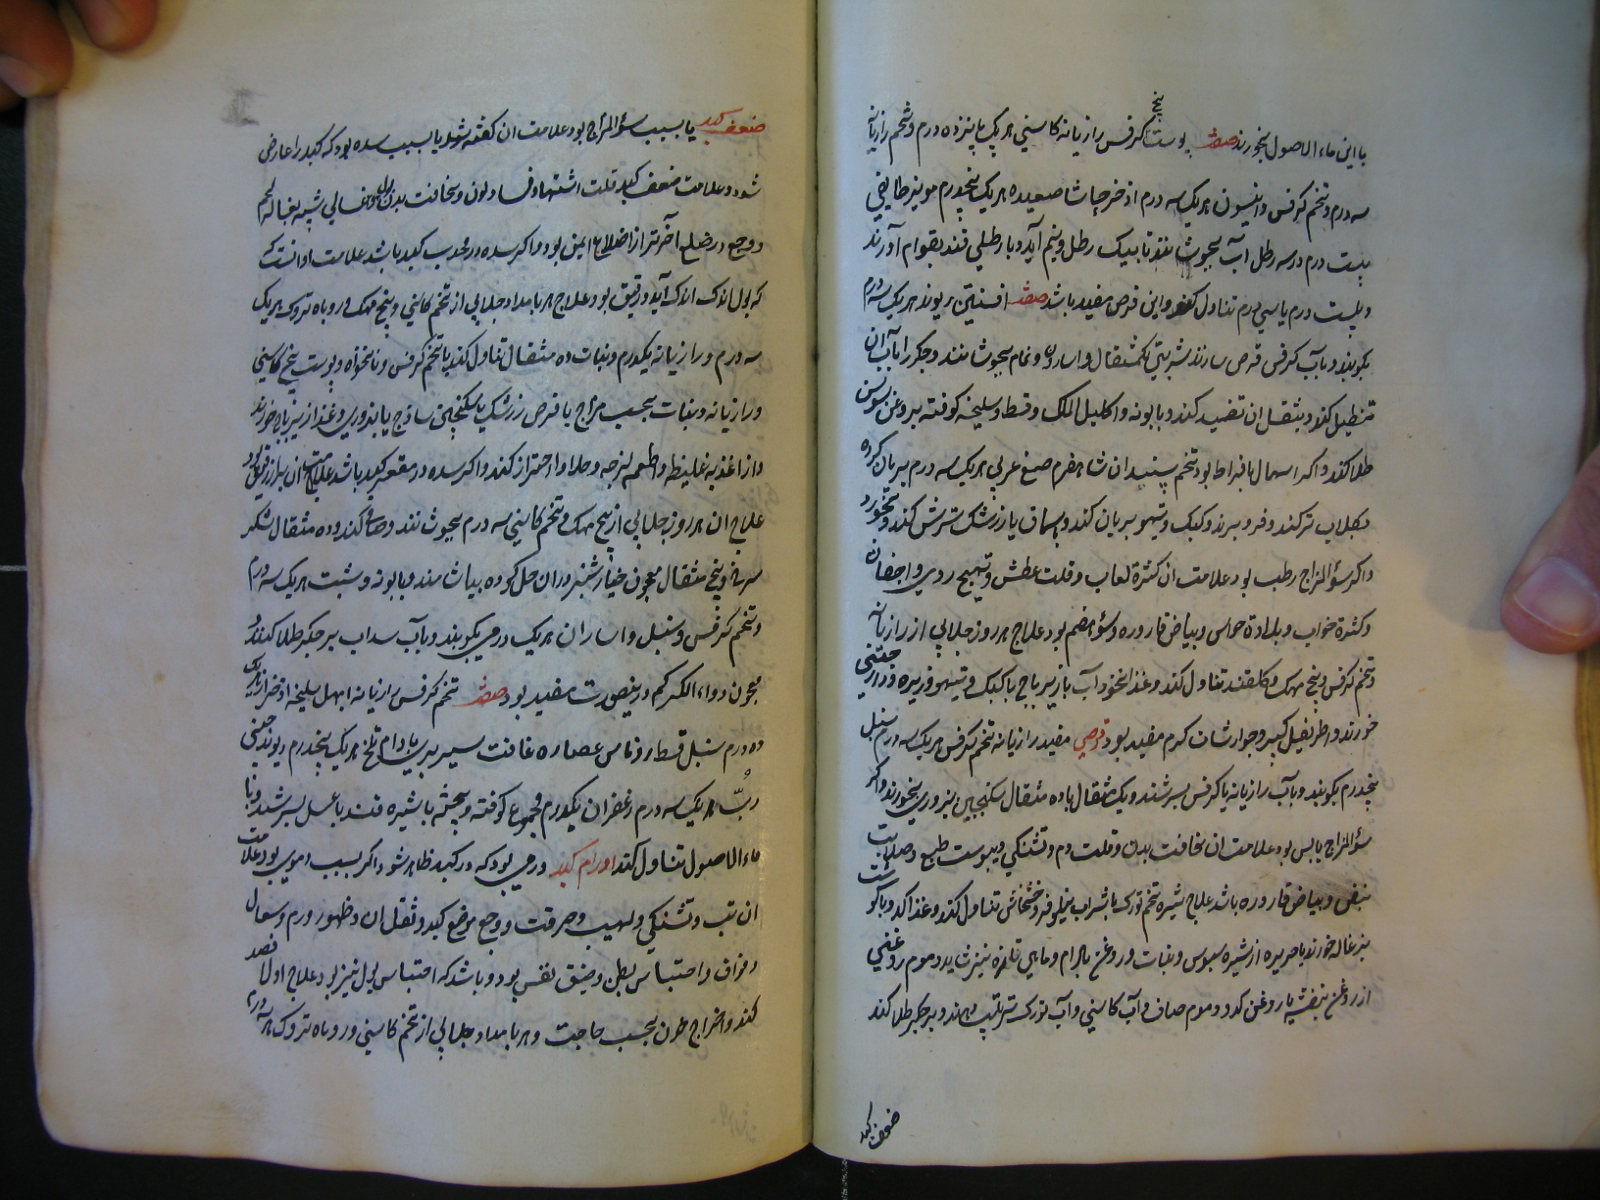 با این ماء الاصول بخورند صفت پوست بیخ کرفس رازیانه کاسنی هر یک پانزده درم و تخم رازیانه
سه درم و تخم کرفس و انیسون هر یک سه درم اذخر حاشا هر یک پنجدرم مویز طایفی
بیست درم در سه رطل آب بجوشانند تا بیک رطل و نیم آید و با رطلی قند بقوام آورند
و بیست درم یا سی درم تناول کنند و این قرص مفید باشد صفت افسنتین ریوند هر یک سه درم
بکوبند و بآب کرفس قرص سازند شربتی یکمثقال و اسارون و نمام بجوشانند و جگر را بآب آن
تنطیل کنند و بثقل آن تضمید کنند و بابونه و اکلیل الملک و قسط و سلیخه کوفته بروغن سوسن
طلا کنند و اگر اسهال بافراط بود تخم شاهفرم صمغ عربی هر یک سه درم بریان کرده
بگلاب تر کنند و فرو برند و کبک و تیهو بریان کنند و بسماق یا زرشک ترش کنند و بخورد
و اگر سؤالمزاج رطب بود علامت آن کثرة لعاب و قلت عطش و تهیج روی و اجفان
و کثرة خواب و بلادة حواس و بیاض قاروره و سؤ هضم بود علاج هر روز جلابی از رازیانه
و تخم کرفس و بیخ مهک و گلقند تناول کند و غذا نخود آب با زیرباج با کبک و تیهو و زیره و دارچینی
خورند و اطریفل کبیر و جوارشات گرم مفید بود قرصی مفید رازیانه تخم کرفس هر یک سه درم سنبل
پنجدرم بکوبند و بآب رازیانه یا کرفس بسرشند و یک مثقال با ده مثقال سکنجبین بزوری بخورند و اگر
سؤالمزاج یابس بود علامت آن نحافت بدن و قلت دم و تشنکی و یبوست طبع و صلابت
نبض و بیاض قاروره باشد علاج شیره تخم تورک با شراب نیلوفر و خشخاش تناول کند و غذا کدو با گوشت
بزغاله خورند یا حریره از شیره سبوس و نبات و روغن بادام و ماهی تازه نیز شاید و موم روغنی
از روغن بنفشه یا روغن کدو و موم صاف و آب کاسنی و آب تورک ترتیب دهند و بر جگر طلا کنند
ضعف کبد
ضعف کبد یا بسبب سؤالمزاج بود علامت آن گفته شد یا بسبب سده بود که کبد را عارض
شود و علامت ضعف کبد قلت اشتها و فساد لون و نحافت بدن و غسالی شبیه بغساله لحم
و وجع در ضلع آخرتر از اضلاع ایمن بود و اگر سده در محدب کبد باشد علامت او آنست
که بول اندک اندک آید و رقیق بود علاج هر بامداد جلابی از تخم کاسنی و بیخ مهک و روباه تروک هر یک
سه درم و رازیانه یکدرم و نبات ده مثقال تناول کند یا تخم کرفس و نانخواه و پوست بیخ کاسنی
و رازیانه و نبات بحسب مزاج با قرص زرشک یا سکنجبین ساذج یا بزوری و غذا از زیرباج خورند
و از اغذیه غلیظه و اطعمه لزجه و حلاوا احتراز کنند و اگر سده در مقعر کبد باشد علامت آن براز رقیق بود
علاج آن هر روز جلابی از بیخ مهک و تخم کاسنی سه درم بجوشانند و صاف کنند و ده مثقال شکر
سرخ و پنج مثقال معجون خیارشنبر در آن حل کرده بیاشامند و بابونه و شبت هر یک سه درم
و تخم کرفس و سنبل و اسارون هر یک درمی بکوبند و بآب سداب بر جگر طلا کنند و
معجون دواء الکرکم درینصورت مفید بود صفت تخم کرفس رازیانه ابهل سلیخه اذخر هر یک
ده درم سنبل قسط روناس عصاره غافت بادام تلخ هر یک پنجدرم ریوند چینی
ربّ هر یک سه درم زعفران یکدرم مجموع کوفته و بیخته با شیره قند یا عسل بسرشند و با
ماء الاصول تناول کند اورام کبد ورمی بود که در کبد ظاهر شود اگر بسبب دموی بود علامت
آن تب و تشنکی و لهیب و حرقت و وجع موضع کبد و ثقل آن و ظهور ورم و سعال
و فواق و احتباس بطن و ضیق نفس بود و باشد که احتباس بول نیز بود علاج اولا فصد
کند و اخراج خون بحسب حاجت و هر بامداد جلابی از تخم کاسنی و روباه تروک هر